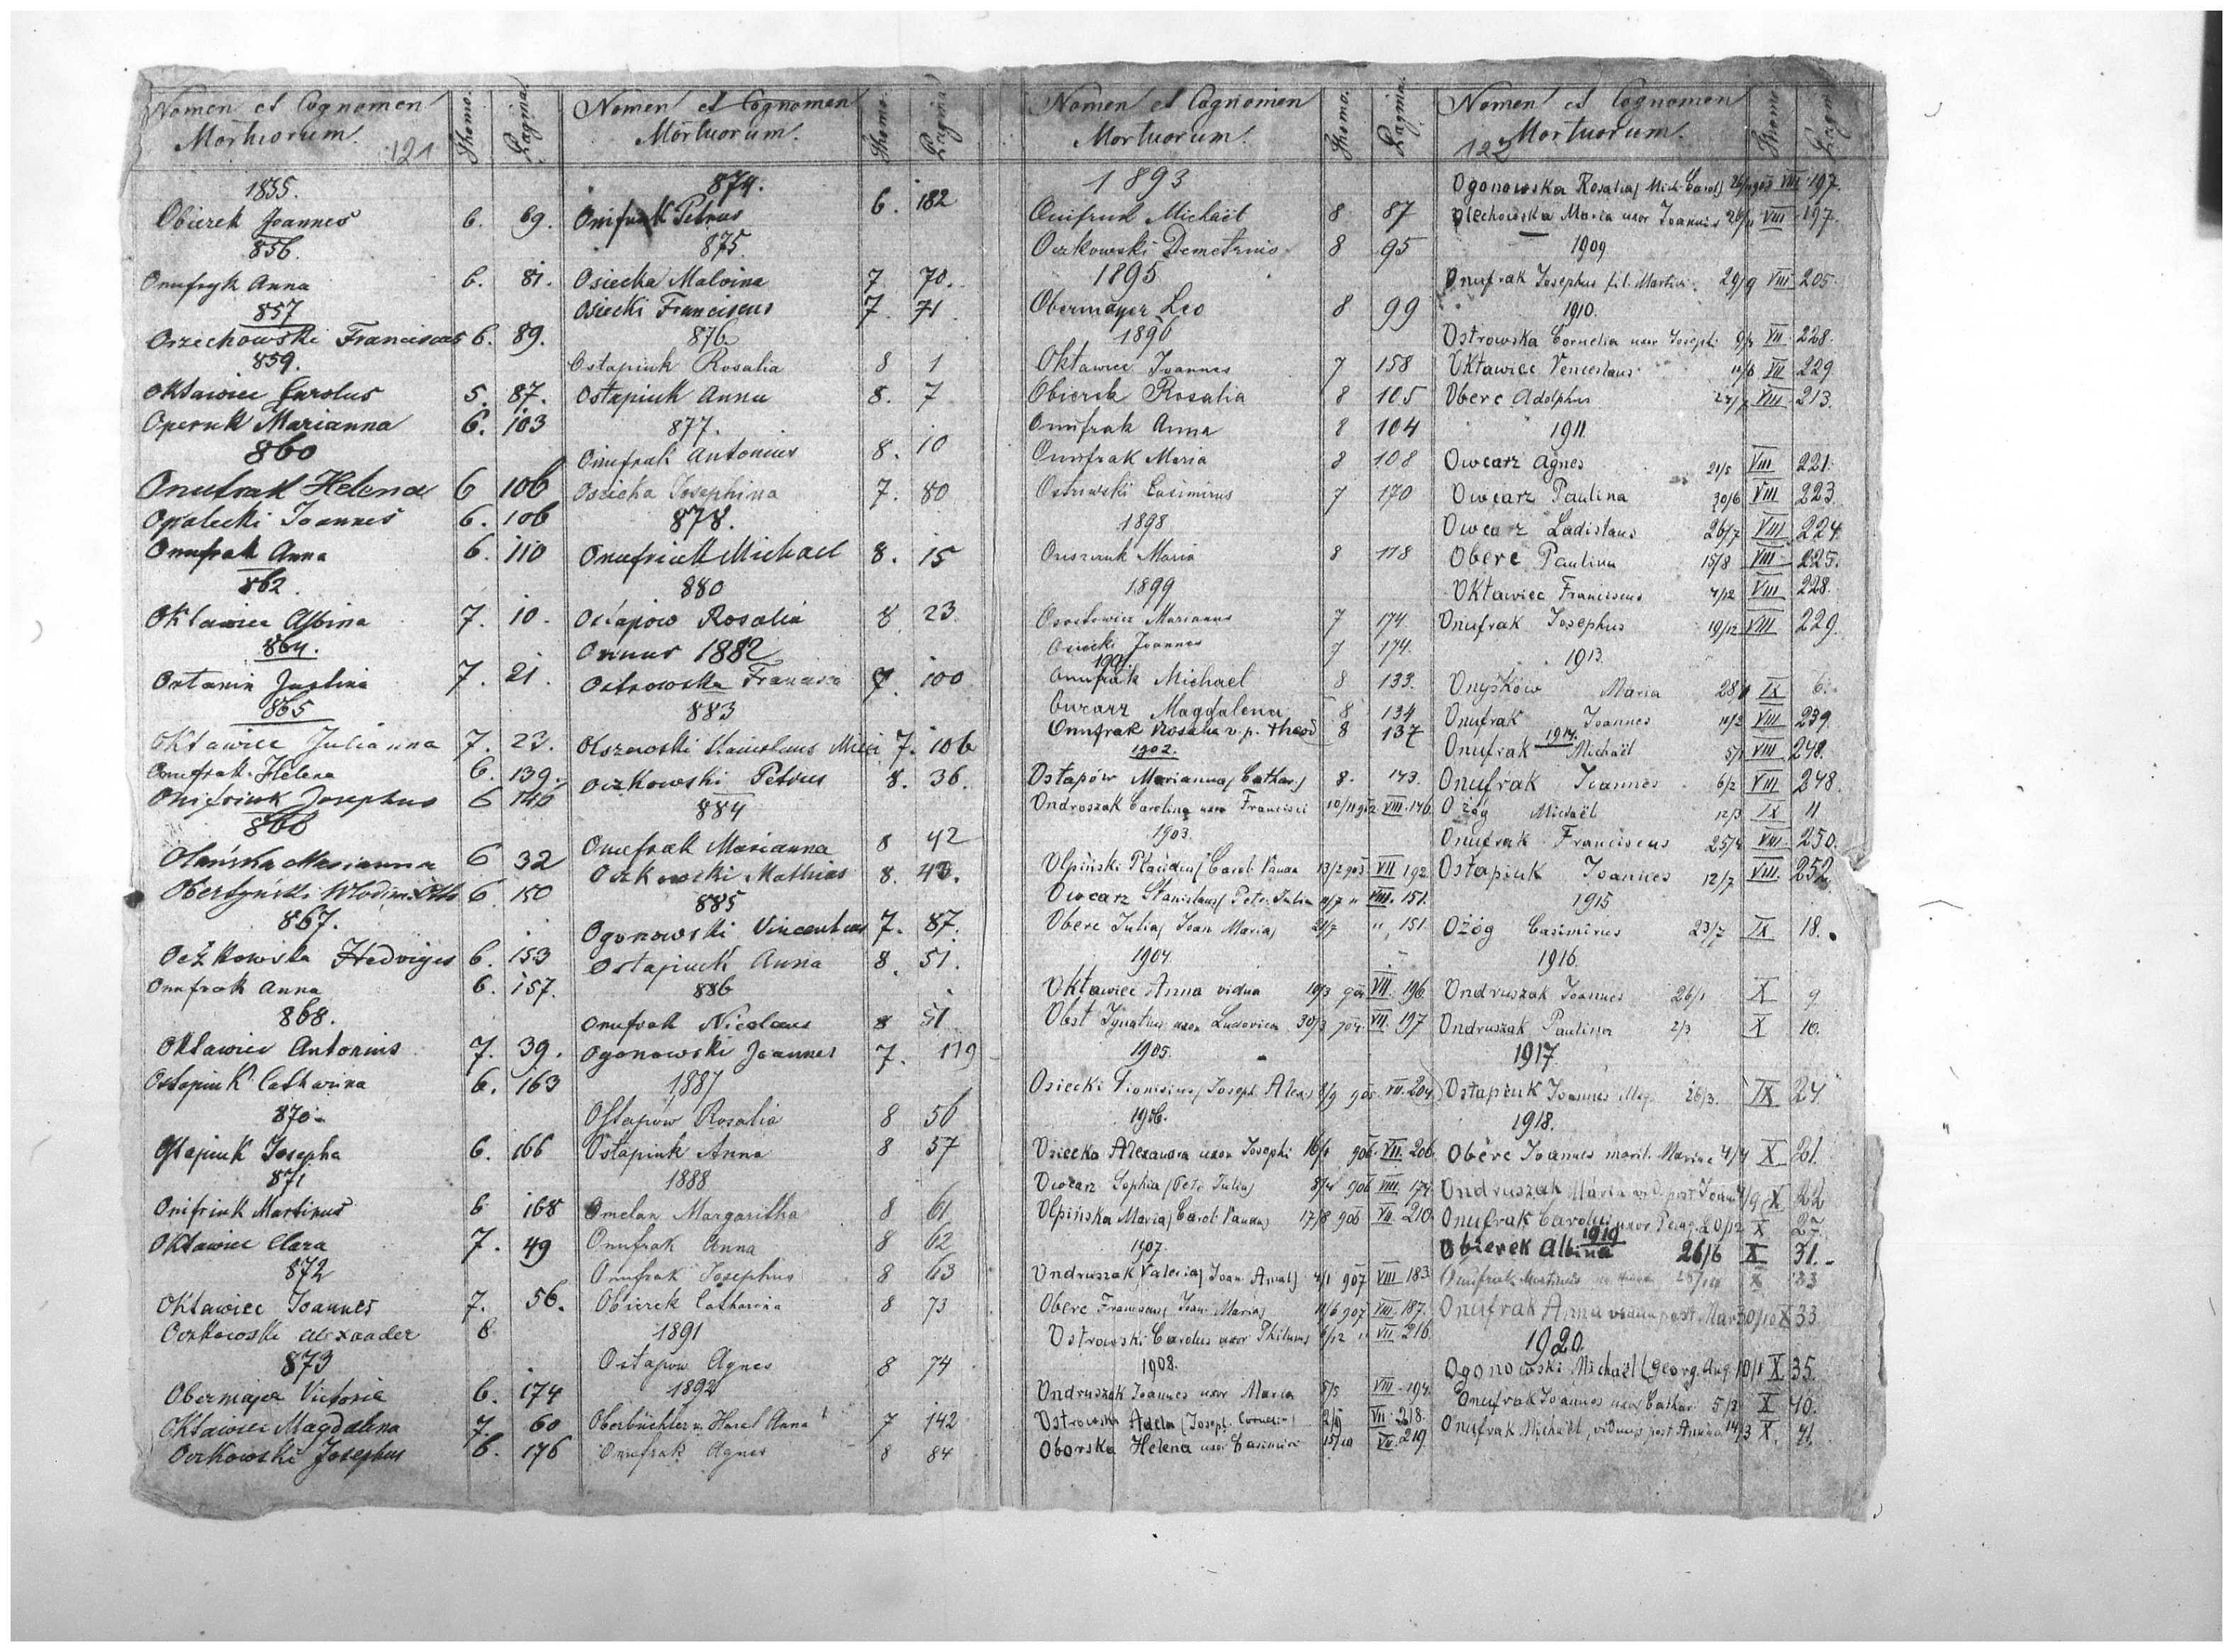 Nomen et Cognomen
Mortuorum. 121
Thomo.
Pagina
1855.
Obierek Joannes 6. 69.
856.
Onufryk Anna 6. 81.
857
Orzechowski Franciscus 6. 89.
859.
Oktawiec Carolus 5. 87.
Operuk Marianna 6. 103
860
Onufrak Helena 6 106
Opalecki Joannes 6. 106
Onufrak Anna 6. 110
862.
Oktawiec Albina 7. 10.
864.
Justina 7. 21.
865
Oktawiec Julianna 7. 23.
Onufrak Helena 6. 139.
Onifriuk Josephus 6 146
866
Marianna 6 32
Obertyński 6. 150
867.
Oczkowska Hedviges 6. 153
Onufrak Anna 6. 157.
868.
Oktawiec Antonius 7. 39.
Ostapiuk Catharina 6. 163
870.
Ostapiuk Josepha 6. 166
871
Onifriuk Martinus 6 168
Oktawiec Clara 7. 49
872
Oktawiec Joannes 7. 56.
Oczkowski Alexander 8
873
Obermajer Victoria 6. 174
Oktawiec Magdalena 7. 60
Oczkowski Josephus 6. 176
Nomen et Cognomen
Mortuorum.
Thomo.
Pagina
874.
Onifrak Petrus 6. 182
875
Osiecka Malvina 7 70.
Osiecki Franciscus 7. 71.
876
Ostapiuk Rosalia 8 1
Ostapiuk Anna 8. 7
877.
Onufrak Antonius 8. 10
Osiecka Josephina 7. 80
878.
Onufriuk Michael 8. 15
880
Ostapow Rosalia 8. 23.
Annus 1882
Ostrowska Francisca 7. 100
883
Olszewski Stanislaus 7. 106
Oczkowski Petrus 8. 36.
884
Onufrak Marianna 8 42
Oczkowski Mathias 8. 43.
885
Ogonowski Vincentius 7. 87.
Ostapiuk Anna 8. 51.
886
Onufrak Nicolaus 8 51
Ogonowski Joannes 7. 119
1887
Ostapów Rosalia 8 56
Ostapiuk Anna 8 57
1888
Omelan Margaritha 8 61
Onufrak Anna 8 62
Onufrak Josephus 8 63
Obierek Catharina 8 73
1891
Ostapow Agnes 8 74
1892
Anna 7 142
Onufrak Agnes 8 84
Nomen et Cognomen
Mortuorum.
Thomo.
Pagina.
1893
Onifruk Michaël 8 87
Oczkowski Demetrius 8 95
1895
Obermayer Leo 8 99
1896
Oktawiec Joannes 7 158
Obierek Rosalia 8 105
Onufrak Anna 8 104
Onufrak Maria 8 108
Casimirus 7 170
1898
Maria 8 118
1899
Marianus 7 174
Osiecki Joannes 7 174.
1901.
Onufrak Michael 8 133.
Owcarz Magdalena 8 134
Onufrak Rosalia v. p. Theod 8 137
1902.
Ostapów Marianna (Cathar) 8. 143.
Ondroszak Carolina uxor Francisci 10/11 902 VIII. 146.
1903.
Olpiński Placidus (Carol. Vanda 13/2 903 VII 192.
Owcarz Stanislaus (Petr. Julia 11/7 " VIII. 151.
Oberc Julia (Joan. Maria) 21/7 " 151
1904.
Oktawiec Anna vidua 10/3 904 VII. 196
Obst Ignatius uxor Ludovica 30/3 904. VII. 197
1905.
Osiecki Dionisius (Joseph Alex) 8/9 905. VII. 204
1906.
Osiecka Alexandra uxor Josephi 16/1 906. VII. 206.
Owcarz Sophia (Petr. Julia) 8/4 906 VIII. 174.
Olpińska Maria (Carol. Vanda) 17/8 906 VII. 210.
1907.
Ondruszak Valeria (Joan. Amal) 4/1 907 VIII 183.
Oberc Franciscus (Joan. Maria) 11/6 907 VIII. 187.
Ostrowski Carolus uxor 6/12 " VII. 216.
1908.
Ondruszak Joannes uxor Maria 5/5 VIII. 194.
Ostrowska Adela (Joseph. Cornelia) 2/9 VII. 218.
Oborska Helena uxor Casimiri 15/10 VII. 219.
Nomen et Cognomen
Mortuorum.
122
Thomo
Pagina
Ogonowska Rosalia (Mich. Carol) VIII. 197.
Olechowska Maria uxor Joannis 26/11 VIII. 197.
1909
Onufrak Josephus fil. Martini 29/9 VIII 205.
1910.
Ostrowska Cornelia uxor Josephi VII. 228.
Oktawiec Venceslaus VII 229.
Oberc Adolphus 27/7 VIII 213.
1911.
Owcarz Agnes 21/5 VIII 221.
Owcarz Paulina 30/6 VIII 223.
Owcarz Ladislaus 26/7 VIII 224
Oberc Paulina 15/8 VIII 225.
Oktawiec Franciscus 4/12 VIII 228.
Onufrak Josephus 19/12 VIII 229.
1913.
Onyśków Maria 28/1 IX 6.
Onufrak Joannes VIII 239.
1914.
Onufrak Michaël 5/1 VIII 248.
Onufrak Joannes 6/2 VIII 248.
Ożóg Michaël 12/3 IX 11
Onufrak Franciscus 25/4 VIII 250.
Ostapiuk Joannes 12/7 VIII. 252.
1915
Ożóg Casimirus 23/7 IX 18.
1916.
Ondruszak Joannes 26/1 X 9
Ondruszak Paulina 2/3 X 10.
1917.
Ostapiuk Joannes 26/3. IX 24
1918.
Oberc Joannes marit. Mariae 4/4 X 21.
Ondruszak Maria vid. post Joan X 22
Onufrak Carolus uxor Pelag. 20/12 X 27.
1919
Obierek Albina 26/6 X 31.-
Onufrak Martinus X 33
Onufrak Anna vidua post Mar 30/10 X 33.
1920.
Ogonowski Michaël (Georg. Aug 10/1 X 35.
Onufrak Joannes uxor Cathar 5/2 X 40.
Onufrak Michaël, viduus post Annam 14/3 X. 41.